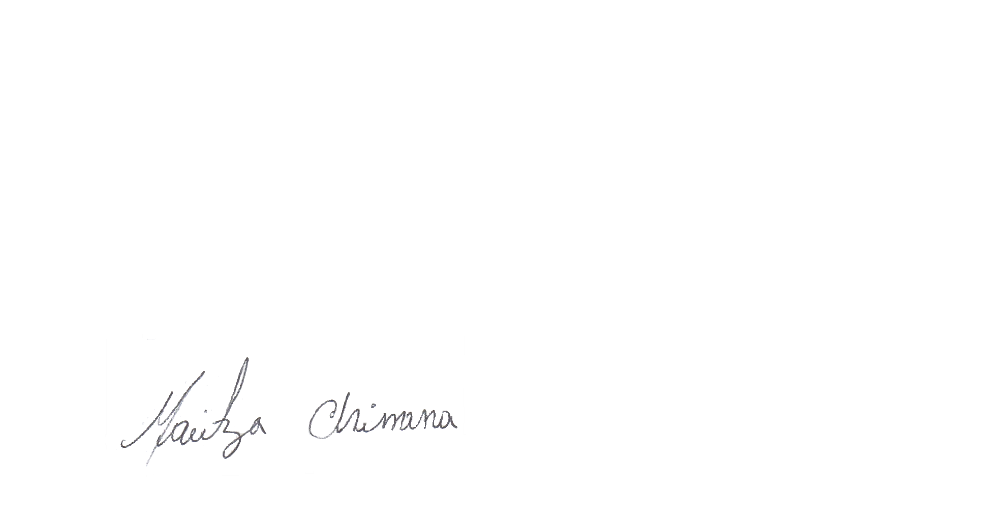 Maritza Chimana